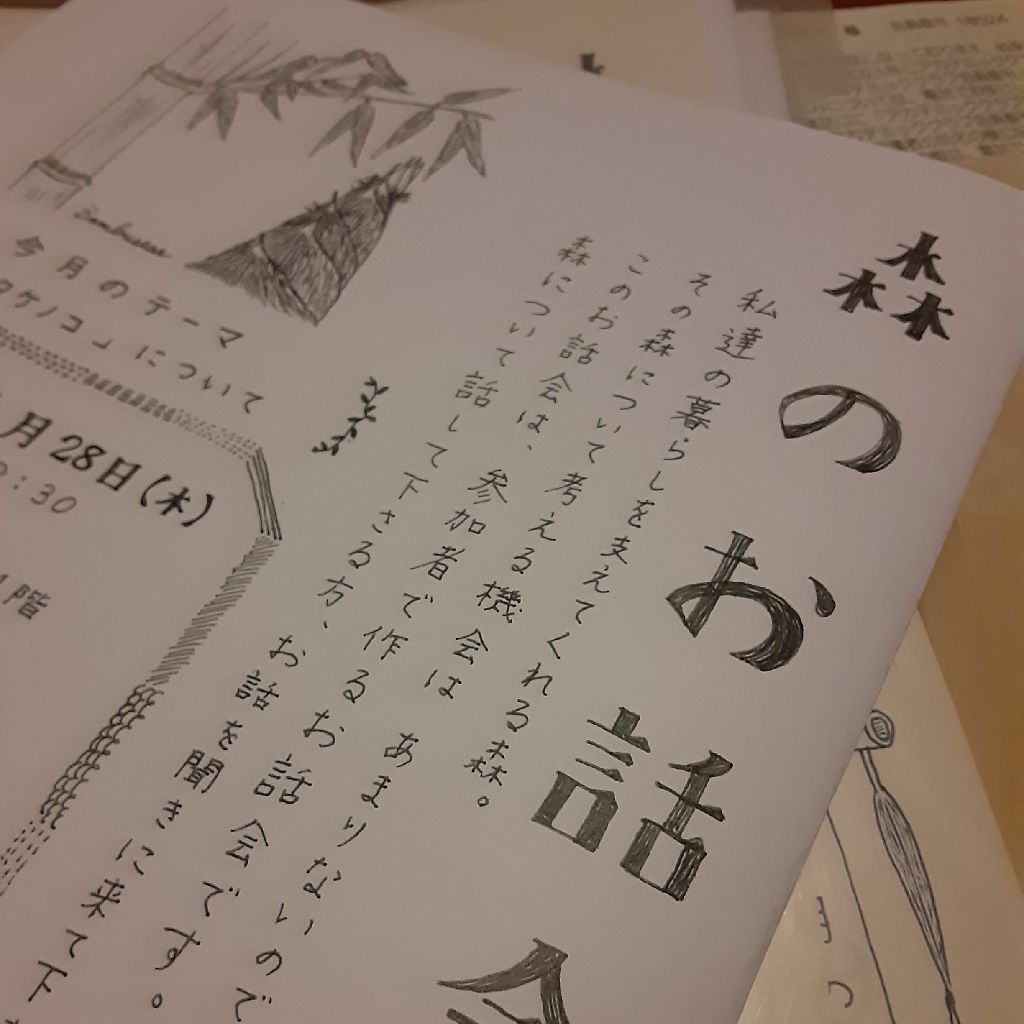 森のお話会
私達の暮らしを支えてくれる森。
その森について考える機会は あまりないので
このお話会は、参加者で作るお話会です。
森について話して下さる方、お話を聞きに来て下
Bambuseae
今月のテーマ
タケノコ」について
月28日(木)
:30
1階